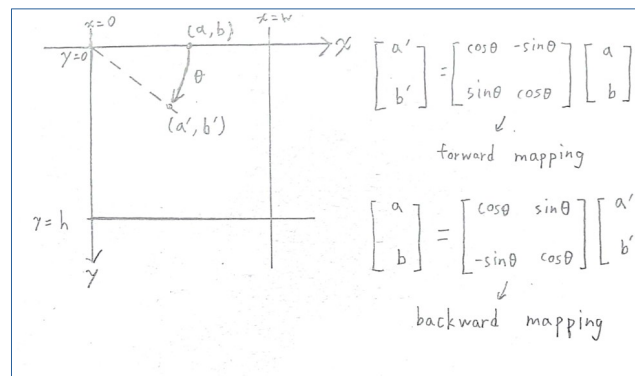 x=0
(a,b)
x=w
x
y=0
θ
(a',b')
y=h
y
[a' b'] = [cosθ -sinθ sinθ cosθ] [a b]
forward mapping
[a b] = [cosθ sinθ -sinθ cosθ] [a' b']
backward mapping